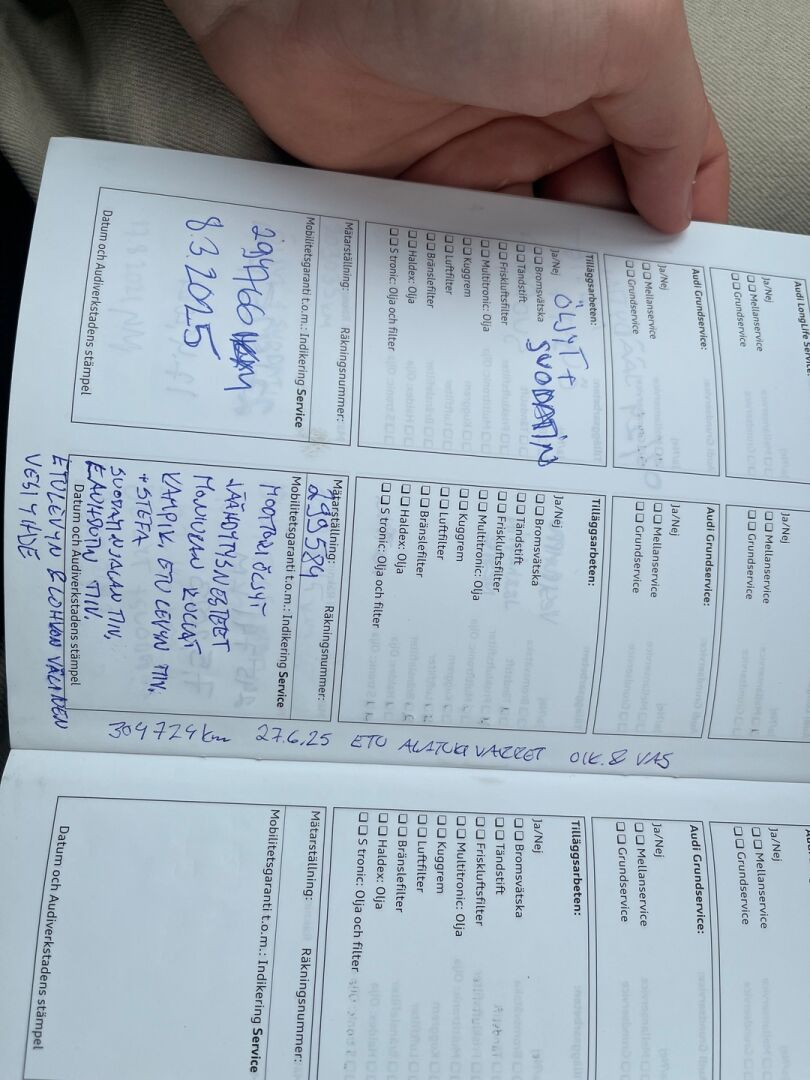 Audi LongLife Service:
Ja/Nej
☐ ☐ Mellanservice
☐ ☐ Grundservice
Audi Grundservice:
Ja/Nej
☐ ☐ Mellanservice
☐ ☐ Grundservice
Tilläggsarbeten:
ÖLJYT +
Ja/Nej
SUODATIN
☐ ☐ Bromsvätska
☐ ☐ Tändstift
☐ ☐ Friskluftsfilter
☐ ☐ Multitronic: Olja
☐ ☐ Kuggrem
☐ ☐ Luftfilter
☐ ☐ Bränslefilter
☐ ☐ Haldex: Olja
☐ ☐ S tronic: Olja och filter
Mätarställning: Räkningsnummer:
Mobilitetsgaranti t.o.m.: Indikering Service
294766
8.3.2025
Datum och Audiverkstadens stämpel
Ja/Nej
☐ ☐ Mellanservice
☐ ☐ Grundservice
Audi Grundservice:
Ja/Nej
☐ ☐ Mellanservice
☐ ☐ Grundservice
Tilläggsarbeten:
Ja/Nej
☐ ☐ Bromsvätska
☐ ☐ Tändstift
☐ ☐ Friskluftsfilter
☐ ☐ Multitronic: Olja
☐ ☐ Kuggrem
☐ ☐ Luftfilter
☐ ☐ Bränslefilter
☐ ☐ Haldex: Olja
☐ ☐ S tronic: Olja och filter
Mätarställning: Räkningsnummer:
299584
Mobilitetsgaranti t.o.m.: Indikering Service
MOOTTORI ÖLJYT
JÄÄHDYTYSNESTEET
MONIURAN RULLAT
ETU LEVYN TIIV.
+ STEFA
SUODATINJALAN TIIV,
TIIV.
Datum och Audiverkstadens stämpel
ETULEVYN & LOHKON VÄLINEN
VESIYHDE
304724km 27.6.25 ETU ALATUKIVARRET OIK. & VAS
Ja/Nej
☐ ☐ Mellanservice
☐ ☐ Grundservice
Audi Grundservice:
Ja/Nej
☐ ☐ Mellanservice
☐ ☐ Grundservice
Tilläggsarbeten:
Ja/Nej
☐ ☐ Bromsvätska
☐ ☐ Tändstift
☐ ☐ Friskluftsfilter
☐ ☐ Multitronic: Olja
☐ ☐ Kuggrem
☐ ☐ Luftfilter
☐ ☐ Bränslefilter
☐ ☐ Haldex: Olja
☐ ☐ S tronic: Olja och filter
Mätarställning: Räkningsnummer:
Mobilitetsgaranti t.o.m.: Indikering Service
Datum och Audiverkstadens stämpel